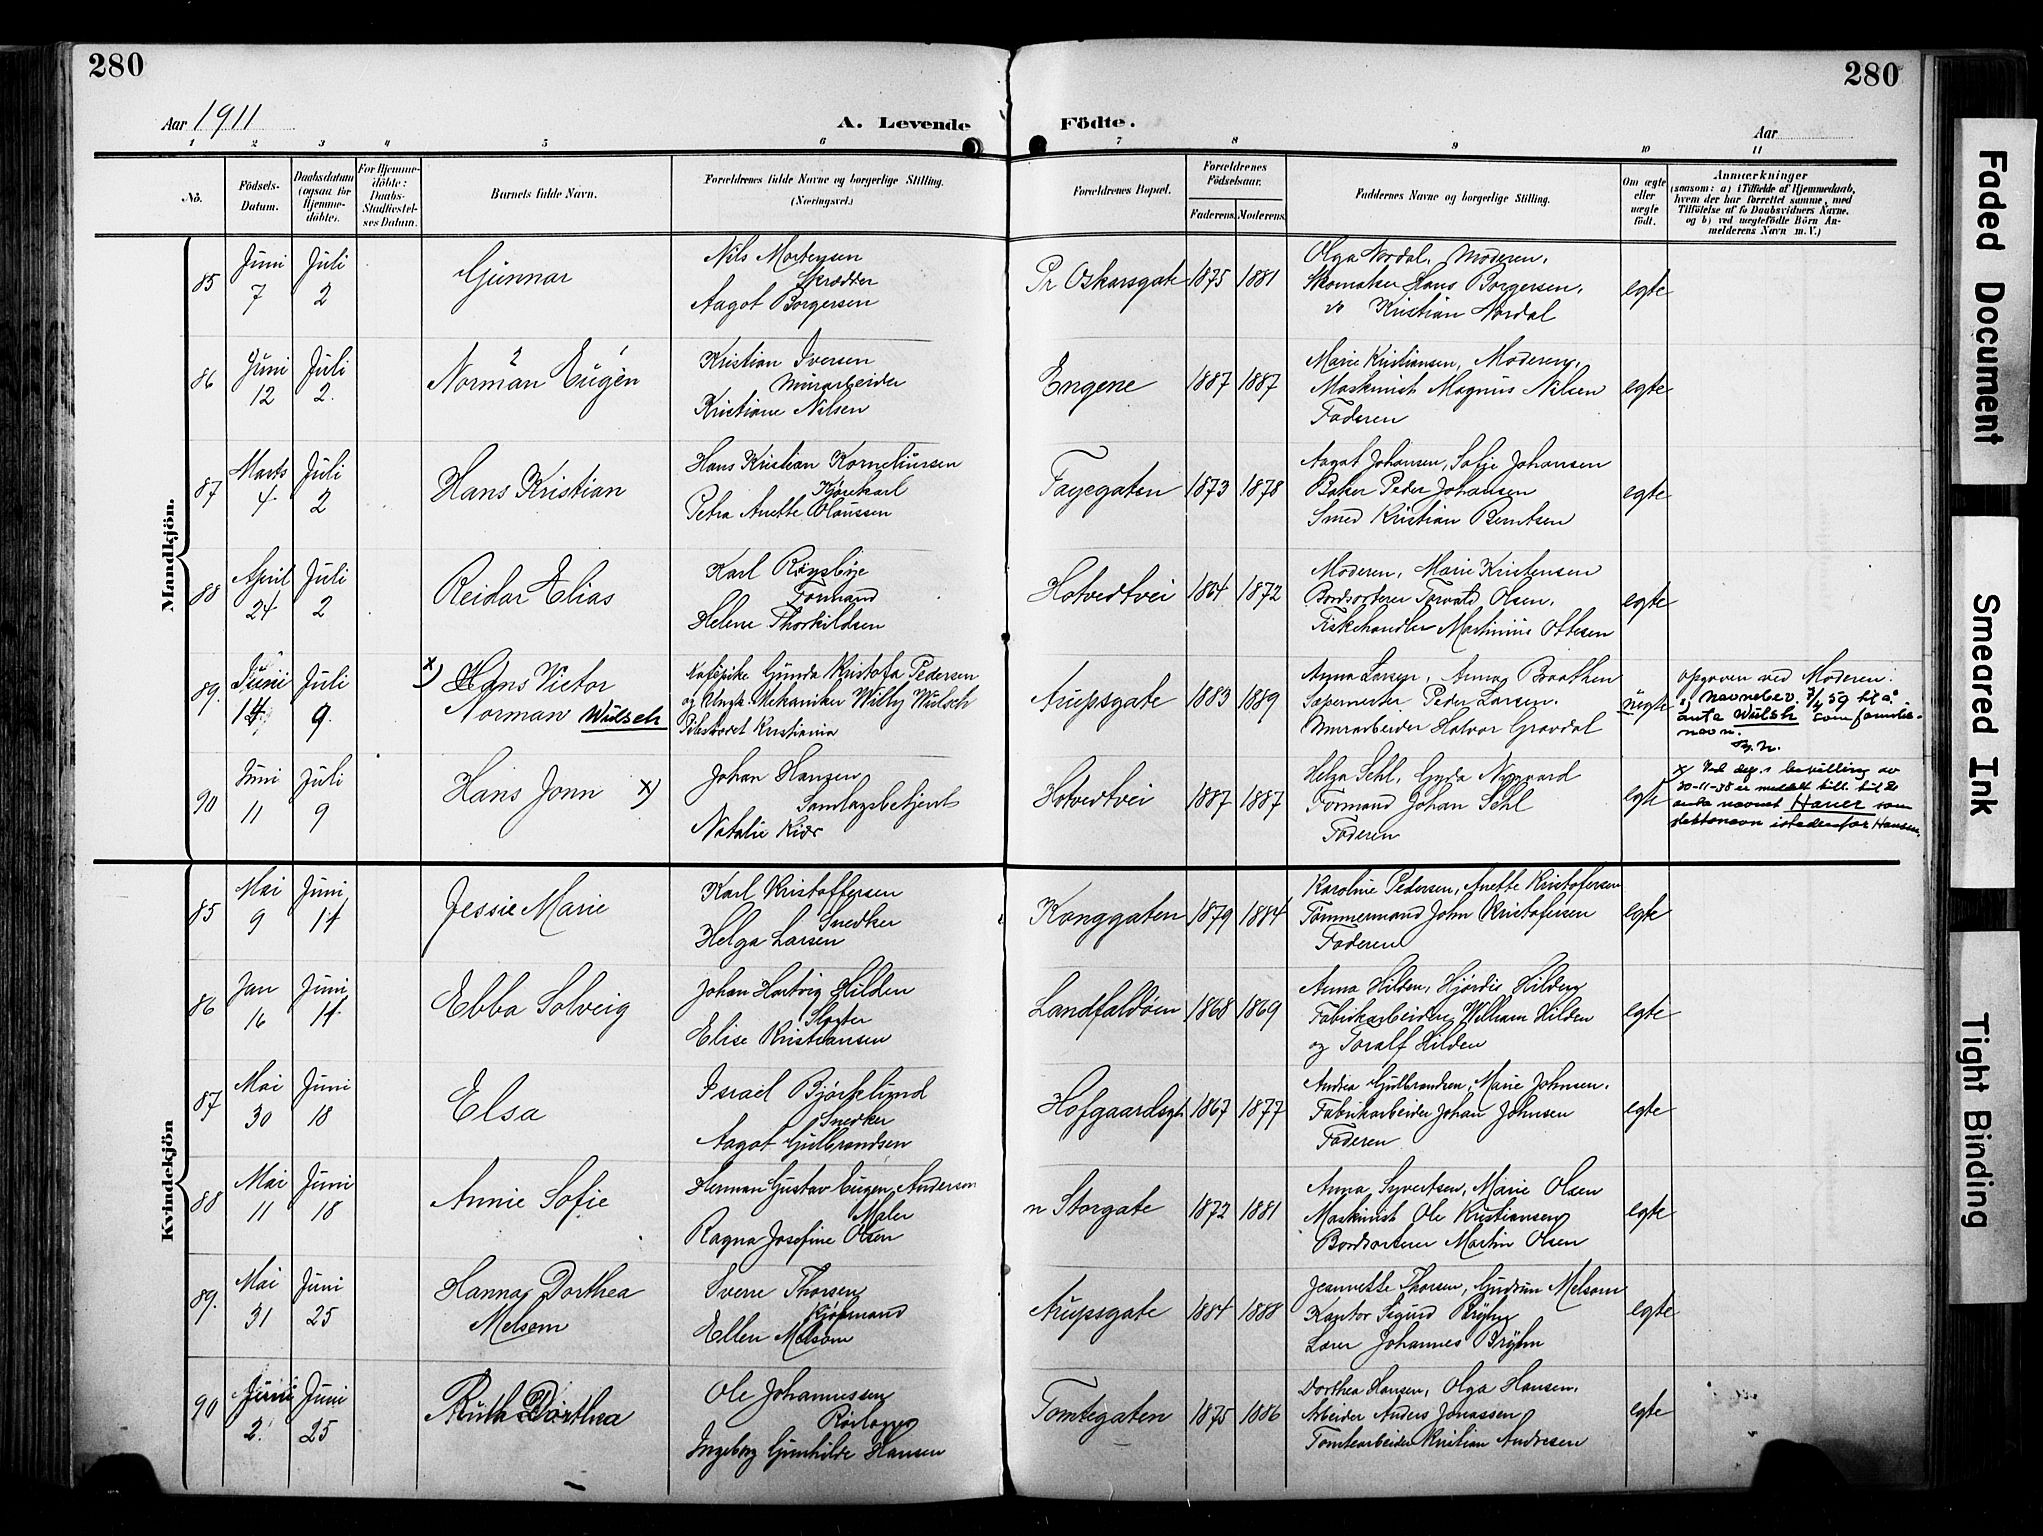 280
280
Aar 1911
A. Levende
Födte.
Aar
1 2 3 4 5 6 7 8 9 10 11
No.
Födsels-
Datum.
Daabsdatum
(ogsaa for
Hjemme-
döbte).
For Hjemme-
döbte:
Daabs-
Stadfæstel-
ses Datum.
Barnets fulde Navn.
Forældrenes fulde Navne og borgerlige Stilling.
(Næringsvei.)
Forældrenes Bopæl.
Forældrenes
Födselsaar.
Faderens.
Moderens.
Faddernes Navne og borgerlige Stilling.
Om ægte
eller
uægte
födt.
Anmærkninger
(saasom: a) i Tilfælde af Hjemmedaab,
hvem der har forrettet samme, med
Tilföielse af to Daabsvidners Navne,
og b) ved uægtefödte Börn An-
melderens Navn m. V.)
Mandkjön.
85
Juni
7
Juli
2
Gunnar
Nils Mortensen
Skrædder
Aagot Borgersen
Pr Oskarsgate
1875
1881
Olga Nordal, Moderen,
Skomaker Hans Borgersen,
do Kristian Nordal
egte
86
Juni
12
Juli
2.
Norman Eugén
Kristian Iversen
Murarbeider
Kristiane Nilsen
Engene
1887
1887
Marie Kristiansen, Moderen,
Maskinist Magnus Nilsen
Faderen
egte
87
Marts
4
Juli
2
Hans Kristian
Hans Kristian Korneliussen
Kjørekarl
Petra Anette Olaussen
Fayegaten
1873
1878
Aagot Johansen, Sofie Johansen
Baker Peder Johansen
Smed Kristian Berntsen
egte
88
April
24
Juli
2
Reidar Elias
Karl
Formand
Helene Thorkildsen
Hotvedtvei
1864
1872
Moderen, Marie Kristensen
Bordsorterer Torvald Olsen,
Fiskehandler Martinius Ottesen
egte
89.
Juni
14
Juli
9
x) Hans Victor
Norman Wülsch
Kafépike Gunda Kristofa Pedersen
og Ungk. Mekaniker Willy Wülsch
Pilestrædet Kristiania
Arupsgate
1883
1889
Anna Larsen, Anna Braathen
Sapemester Peder Larsen,
Murarbeider Halvor Gravdal
uegte
opgaven ved Moderen:
x) Navnebev. 7/4 59 til å
anta Wülsh som familie-
navn.
90
Juni
11
Juli
9
Hans Jonn x)
Johan Hansen
Samlagsbetjent
Natalie Kiær
Hotvedtvei
1887
1887
Helga Sehl, Gyda Nygaard
Formand Johan Sehl
Faderen
egte
x) Ved dep.s bevilling av
30-11-38 er meddelt till. til å
anta navnet Hauer som
slektsnavn istedenfor Hansen.
Kvindekjön
85
Mai
9
Juni
11
Jessie Marie
Karl Kristoffersen
Snedker
Helga Larsen
Konggaten
1879
1884
Karoline Pedersen, Anette Kristofersen
Tømmermand John Kristofersen
Faderen
egte
86
Jan
16
Juni
11
Ebba Solveig
Johan Hartvig Hilden
Slagter
Elise Kristiansen
Landfaldøen
1868
1869
Anna Hilden, Hjørdis Hilden
Fabrikarbeidere William Hilden
og Toralf Hilden
egte
87
Mai
30
Juni
18
Elsa
Israel Bjørkelund
Snedker
Aagot Gulbrandsen
Hofgaardsgt.
1867
1877
Andrea Gulbrandsen, Marie Johnsen,
Fabrikarbeider Johan Johnsen
Faderen
egte
88
Mai
11
Juni
18
Annie Sofie
Herman Gustav Eugen Anderson
Maler
Ragna Josefine Olsen
n Storgate
1872
1881
Anna Syvertsen, Marie Olsen
Maskinist Ole Kristiansen
Bordsorterer Martin Olsen
egte
89.
Mai
31
Juni
25
Hanna Dorthea
Melsom
Sverre Thorsen
Kjøbmand
Ellen Melsom
Arupsgate
1884
1888
Jeannette Thorsen, Gudrun Melsom
Kantor Sigurd Brøyn
Lærer Johannes Brøyhn
egte
90
Juni
2.
Juni
25
Ruth Dorthea
Ole Johannessen
Rørlægger
Ingeborg Gunhilde Hansen
Tomtegaten
1875
1886
Dorthea Hansen, Olga Hansen,
Arbeider Anders Jonassen
Tomtearbeider Kristian Andresen
egte
Faded Document
Smeared Ink
Tight Binding